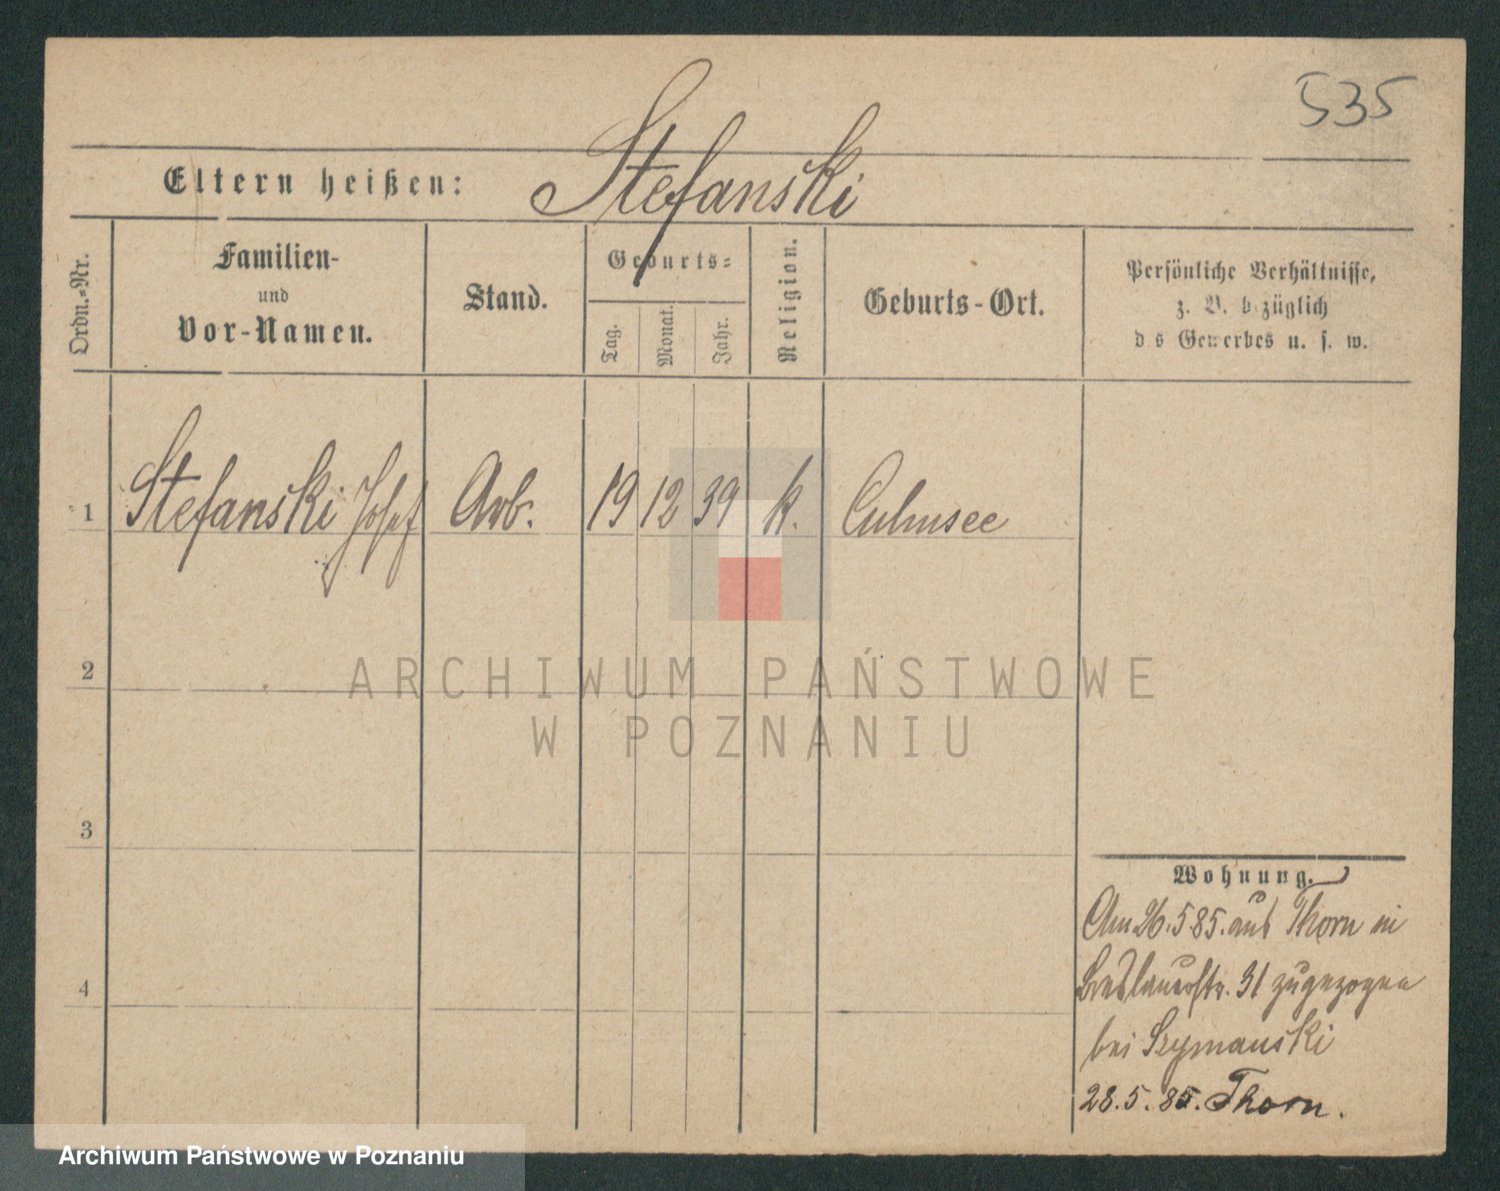 535
Eltern heißen: Stefanski
Ordn.-Nr.
Familien-
und
Vor-Namen.
Stand.
Geburts-
Tag.
Monat.
Jahr.
Religion.
Geburts-Ort.
Persönliche Verhältnisse,
z. B. bezüglich
des Gewerbes u. s. w.
1 Stefanski Josef Arb. 19 12 39 k. Culmsee
2
ARCHIWUM PAŃSTWOWE
W POZNANIU
3
4
Wohnung.
Am 26.5.85. aus Thorn in
Breslauerstr. 31 zugezogen
bei Szymanski
28.5.85. Thorn.
Archiwum Państwowe w Poznaniu